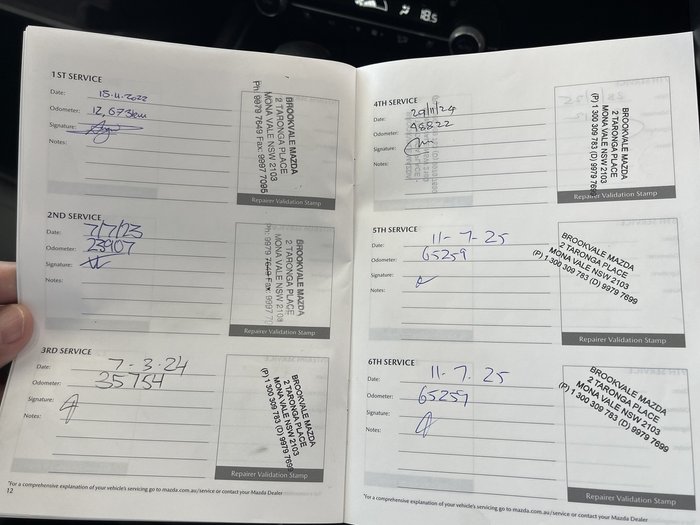 1ST SERVICE
Date: 15.11.2022
Odometer: 12,673km
Signature:
Notes:
BROOKVALE MAZDA
2 TARONGA PLACE
MONA VALE NSW 2103
Ph: 9979 7649 Fax: 9997 7095
Repairer Validation Stamp
2ND SERVICE
Date: 7/7/23
Odometer: 23907
Signature:
Notes:
BROOKVALE MAZDA
2 TARONGA PLACE
MONA VALE NSW 2103
Ph: 9979 7649 Fax: 9997 7
Repairer Validation Stamp
3RD SERVICE
Date: 7-3-24
Odometer: 35754
Signature:
Notes:
BROOKVALE MAZDA
2 TARONGA PLACE
MONA VALE NSW 2103
(P) 1 300 309 783 (D) 9979 7699
Repairer Validation Stamp
*For a comprehensive explanation of your vehicle's servicing go to mazda.com.au/service or contact your Mazda Dealer
12
4TH SERVICE
Date: 29/11/24
Odometer: 48822
Signature:
Notes:
BROOKVALE MAZDA
2 TARONGA PLACE
MONA VALE NSW 2103
(P) 1 300 309 783 (D) 9979 769
Repairer Validation Stamp
5TH SERVICE
Date: 11-7-25
Odometer: 65259
Signature:
Notes:
BROOKVALE MAZDA
2 TARONGA PLACE
MONA VALE NSW 2103
(P) 1 300 309 783 (D) 9979 7699
Repairer Validation Stamp
6TH SERVICE
Date: 11.7.25
Odometer: 65259
Signature:
Notes:
BROOKVALE MAZDA
2 TARONGA PLACE
MONA VALE NSW 2103
(P) 1 300 309 783 (D) 9979 7699
Repairer Validation Stamp
*For a comprehensive explanation of your vehicle's servicing go to mazda.com.au/service or contact your Mazda Dealer